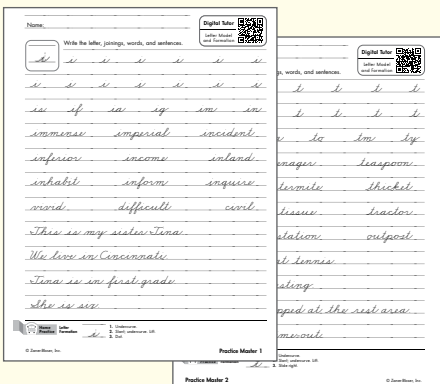 Name:
Digital Tutor
Letter Model
and Formation
Write the letter, joinings, words, and sentences.
i i i i i i i
i i i i i i i
is if ia ig im in
immense imperial incident
inferior income inland
inhabit inform inquire
vivid difficult civil
This is my sister Tina.
We live in Cincinnati.
Tina is in first grade.
She is six.
Home
Practice
Letter
Formation
i
1. Undercurve.
2. Slant; undercurve. Lift.
3. Dot.
© Zaner-Bloser, Inc.
Practice Master 1
Digital Tutor
Letter Model
and Formation
words, and sentences.
t t t t
t t t t
to tm ty
teaspoon
termite thicket
tissue tractor
station outpost
tennis
at the rest area
Undercurve.
Slant; undercurve. Lift.
3. Slide right
© Zaner-Bloser, Inc.
Practice Master 2